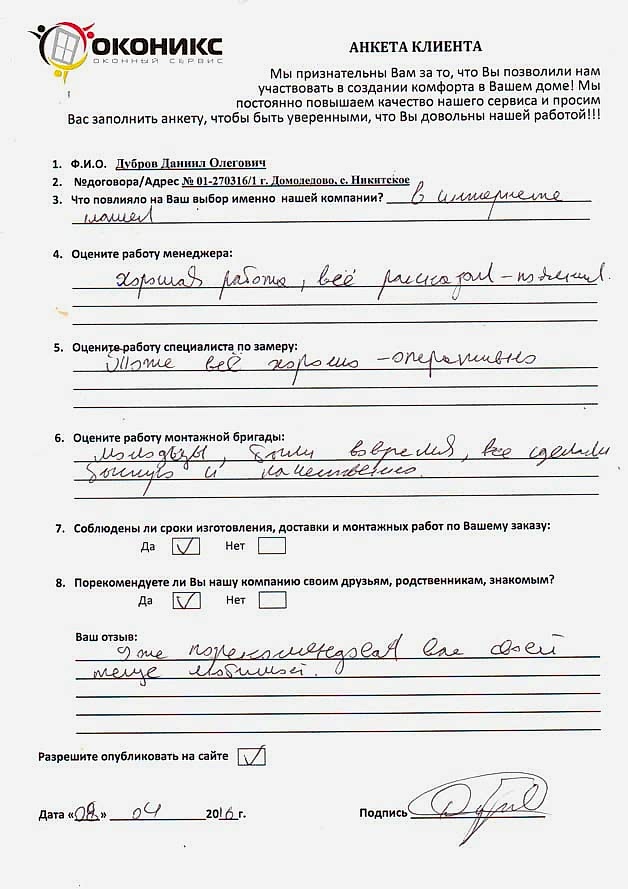 ОКОНИКС
ОКОННЫЙ СЕРВИС
АНКЕТА КЛИЕНТА
Мы признательны Вам за то, что Вы позволили нам
участвовать в создании комфорта в Вашем доме! Мы
постоянно повышаем качество нашего сервиса и просим
Вас заполнить анкету, чтобы быть уверенными, что Вы довольны нашей работой!!!
1. Ф.И.О. Дубров Даниил Олегович
2. №договора/Адрес № 01-270316/1 г. Домодедово, с. Никитское
3. Что повлияло на Ваш выбор именно нашей компании? в интернете
нашел
4. Оцените работу менеджера:
хорошая работа, всё рассказал-пояснил.
5. Оцените работу специалиста по замеру:
Тоже всё хорошо - оперативно
6. Оцените работу монтажной бригады:
молодцы, были вовремя, все сделали
быстро и качественно.
7. Соблюдены ли сроки изготовления, доставки и монтажных работ по Вашему заказу:
Да ✓ Нет
8. Порекомендуете ли Вы нашу компанию своим друзьям, родственникам, знакомым?
Да ✓ Нет
Ваш отзыв:
Уже порекомендовал вас своей
теще любимой.
Разрешите опубликовать на сайте ✓
Дата «08» 04 2016г. Подпись